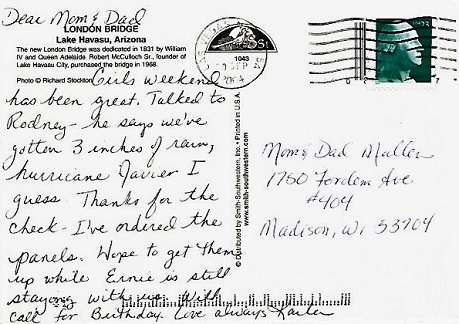 Dear Mom & Dad
LONDON BRIDGE
Lake Havasu, Arizona
The new London Bridge was dedicated in 1831 by William
IV and Queen Adelaide. Robert McCulloch Sr., founder of
Lake Havasu City, purchased the bridge in 1968.
Photo © Richard Stockton
Girls weekend
has been great. Talked to
Rodney - he says we've
gotten 3 inches of rain,
hurricane Javier I
guess. Thanks for the
check - I've ordered the
panels. Hope to get them
up while Ernie is still
staying with us. Will
call for Birthday. Love always
© Distributed by Smith-Southwestern, Inc. • Printed in U.S.A.
www.smith-southwestern.com
LAS VEGAS
1043
SEP
2004
Mom & Dad Muller
1750 Fordem Ave
#404
Madison, Wi 53704